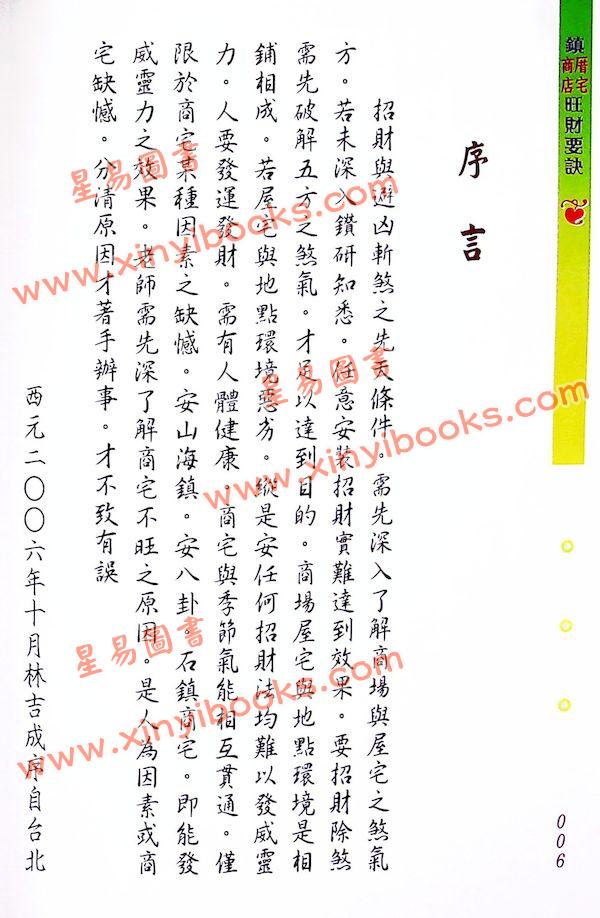 鎮厝宅商店旺財要訣
序言
招財與避凶斬煞之先天條件。需先深入了解商場與屋宅之煞氣
方。若未深入鑽研知悉。任意安裝招財實難達到效果。要招財除煞
需先破解五方之煞氣。才足以達到目的。商場屋宅與地點環境是相
鋪相成。若屋宅與地點環境惡劣。縱是安任何招財法均難以發威靈
力。人要發運發財。需有人體健康。商宅與季節氣能相互貫通。僅
限於商宅某種因素之缺憾。安山海鎮。安八卦。石鎮商宅。即能發
威靈力之效果。老師需先深了解商宅不旺之原因。是人為因素或商
宅缺憾。分清原因才著手辦事。才不致有誤
西元二〇〇六年十月林吉成序自台北
006
星易圖書
www.xinyibooks.com
星易圖書
www.xinyibooks.com
星易圖書
www.xinyibooks.com